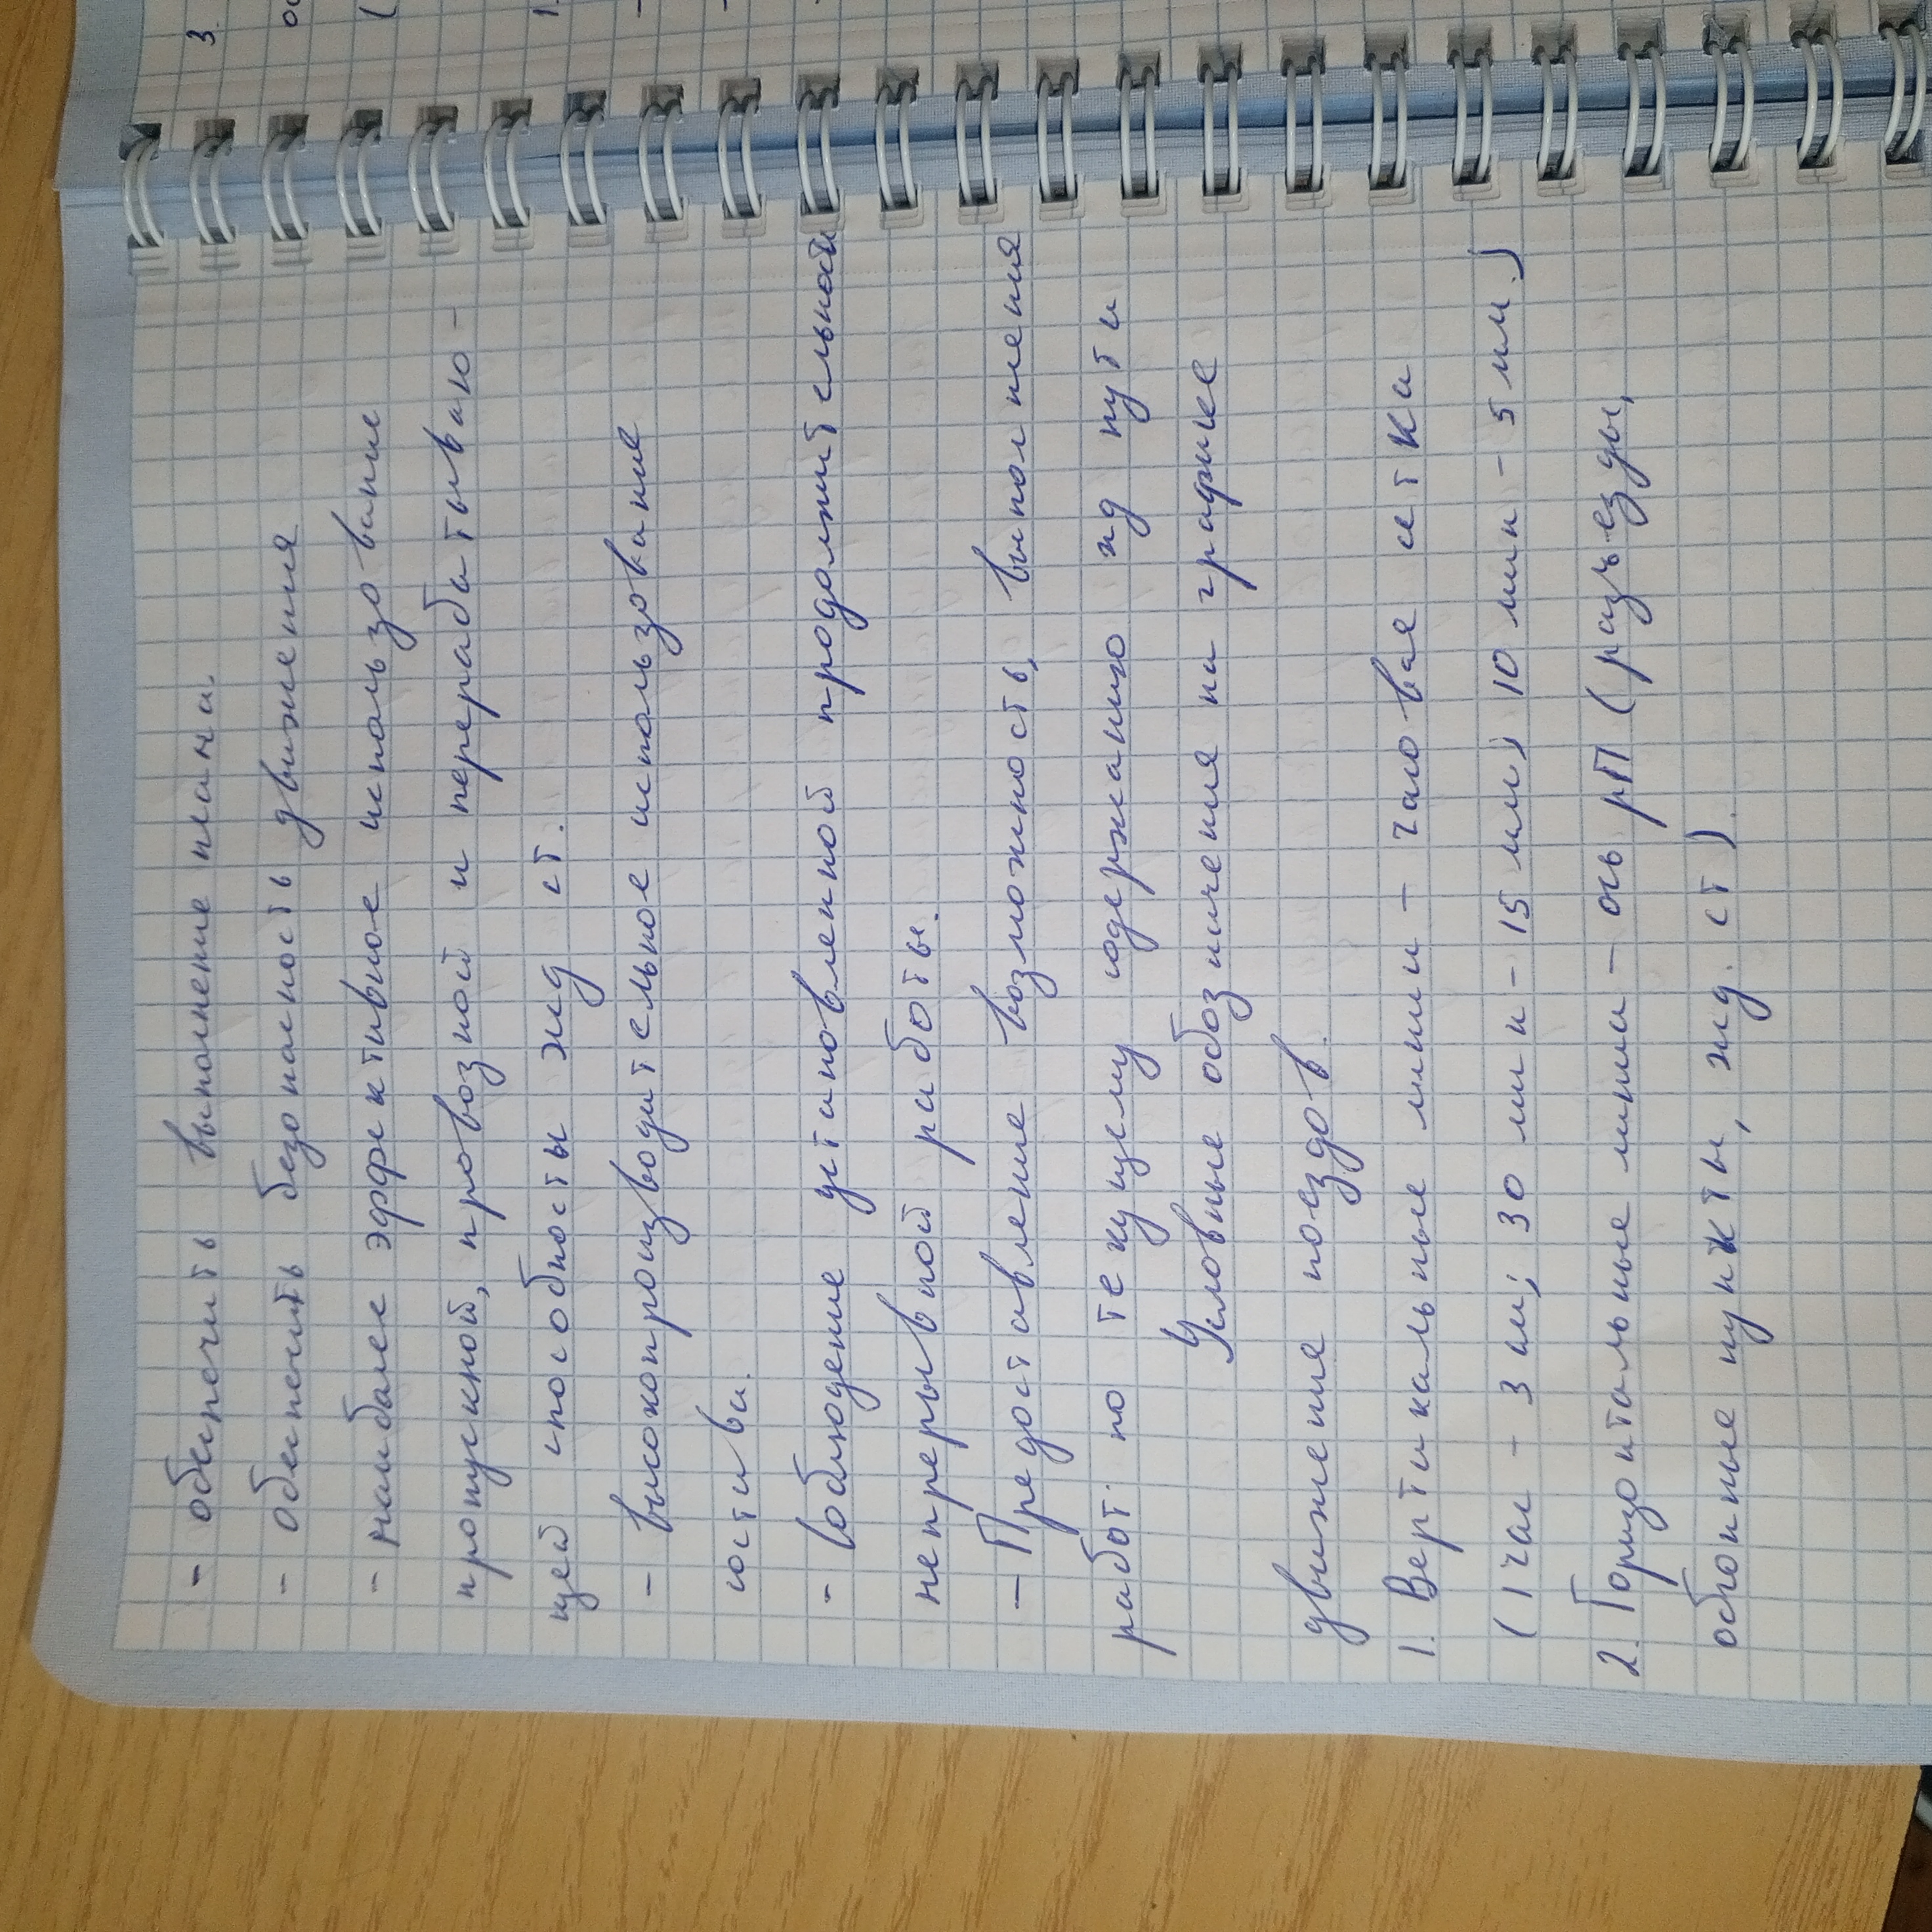 - обеспечить выполнение плана.
- обеспечить безопасность движения
- наиболее эффективное использование
пропускной, провозной и перерабатываю-
щей способности жд ст.
- высокопроизводительное использование
состава.
- Соблюдение установленной продолжительной
непрерывной работы.
- Предоставление возможность, выполнения
работ по текущему содержанию жд пути
Условные обозначения на графике
движение поездов.
1. Вертикальные линии - часовая сетка
(1 час - 3 мм; 30 мин - 15 мм; 10 мин - 5 мм)
2. Горизонтальные линии - ось рП (разъезды,
обгонные пункты, жд. ст).
3